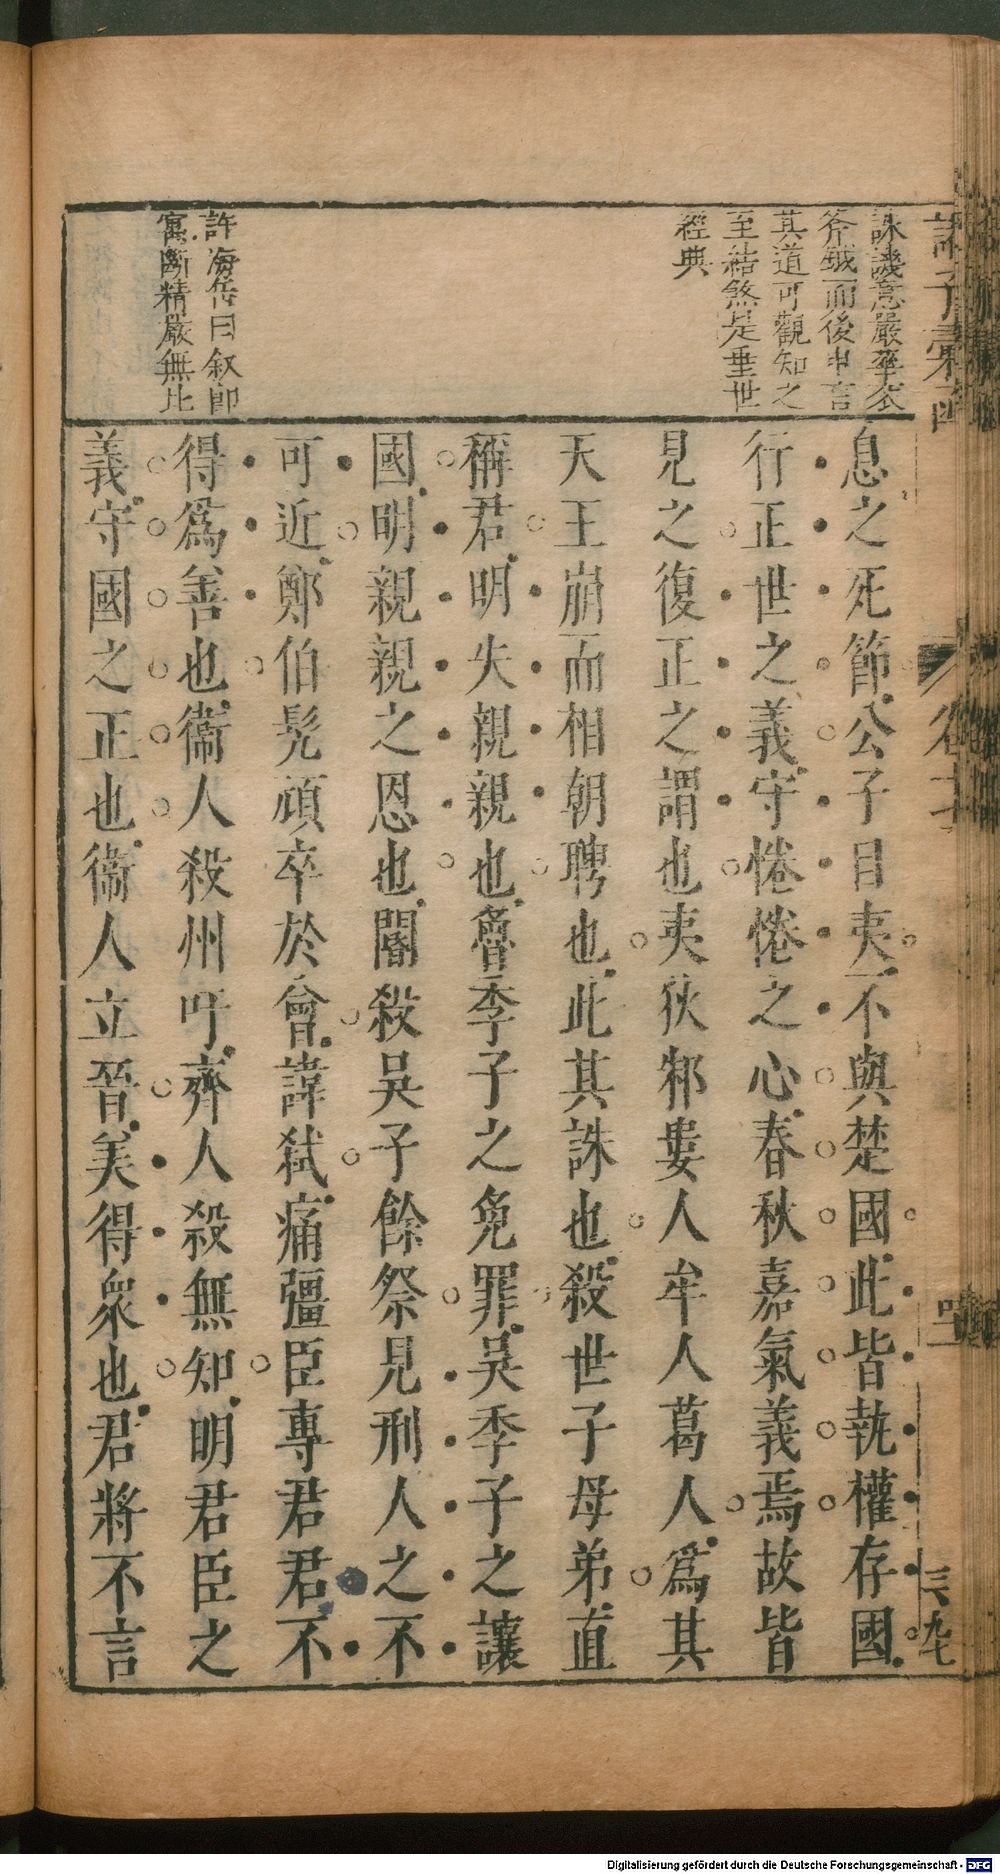 誅譏意嚴華衮
斧鉞而後申言
其道可觀知之
至結煞是垂世
經典
許海岳曰叙節
寓斷精嚴無比
息之死節公子目夷不與楚國此皆執權存國
行正世之義守惓惓之心春秋嘉氣義焉故皆
見之復正之謂也夷狄邾婁人牟人葛人爲其
天王崩而相朝聘也此其誅也殺世子母弟直
稱君明失親親也魯季子之免罪吳季子之讓
國明親親之恩也閽殺吳子餘祭見刑人之不
可近鄭伯髡頑卒於會諱弑痛彊臣專君君不
得爲善也衞人殺州吁齊人殺無知明君臣之
義守國之正也衞人立晉美得衆也君將不言
Digitalisierung gefördert durch die Deutsche Forschungsgemeinschaft - DFG